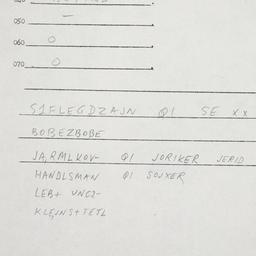 050 –
060 O
070 O
S1FLEGDZAJN QI SE XX
BOBEZBOBE
JA,RMLKOV- QI JORIKER JERID
HANDLSMAN QI SOJXER
LEB+ UNGZ-
KLEJNS+TETL